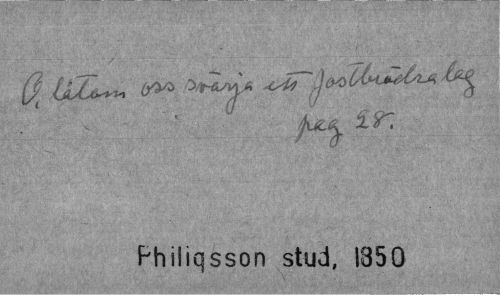 O, låtom oss svärja ett fostbrödralag
pag 28.
Philiqsson stud, 1850